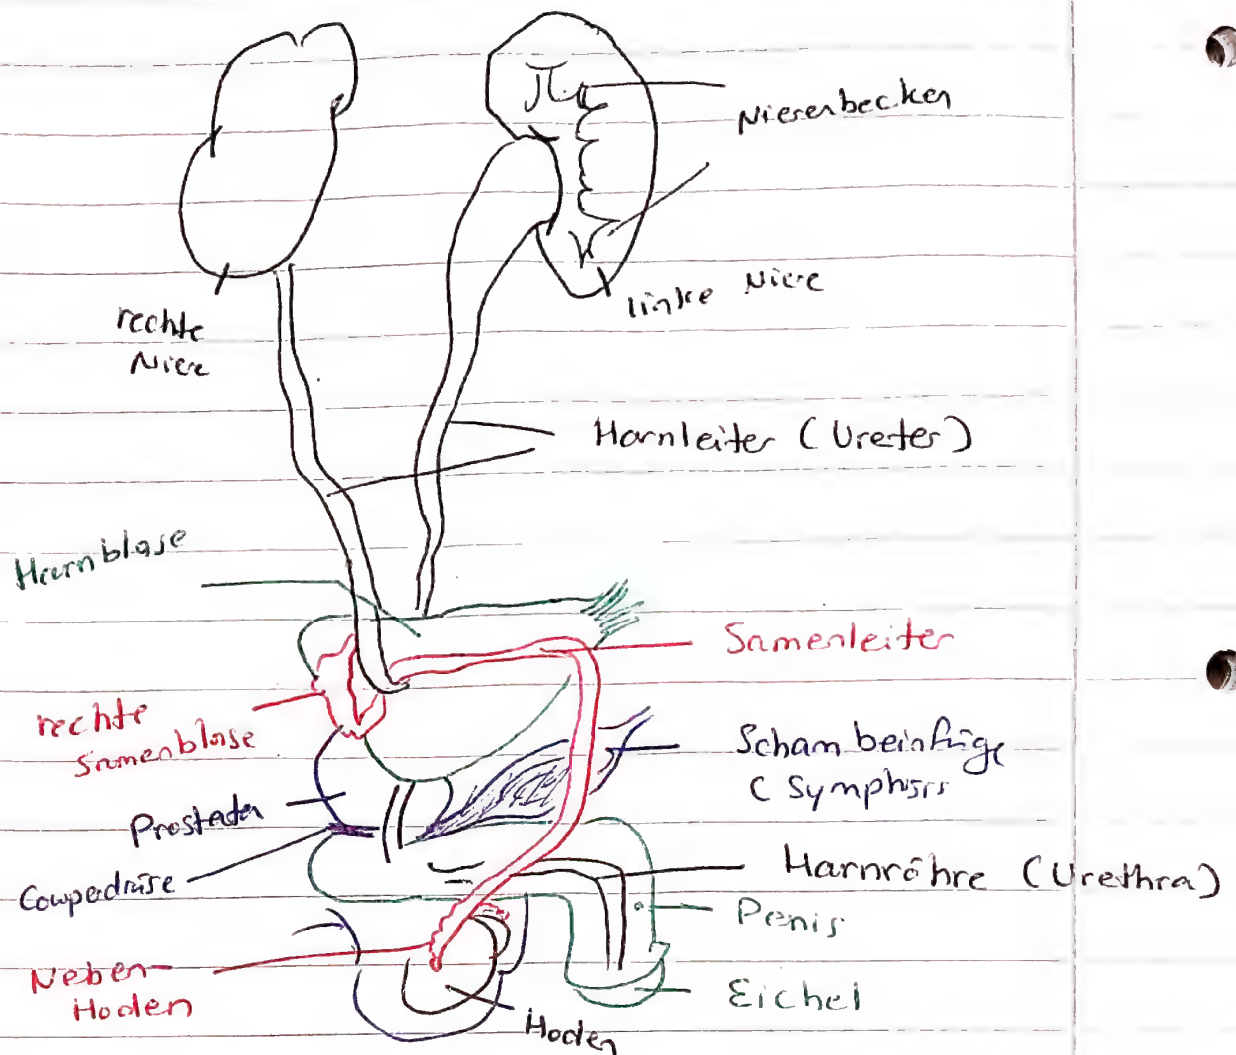 Nierenbecken
linke Niere
rechte
Niere
Harnleiter (Ureter)
Harnblase
Samenleiter
rechte
Samenblase
Schambeinfuge
( Symphisis
Prostata
Cowperdrüse
Harnröhre (Urethra)
Penis
Neben-
Hoden
Eichel
Hoden